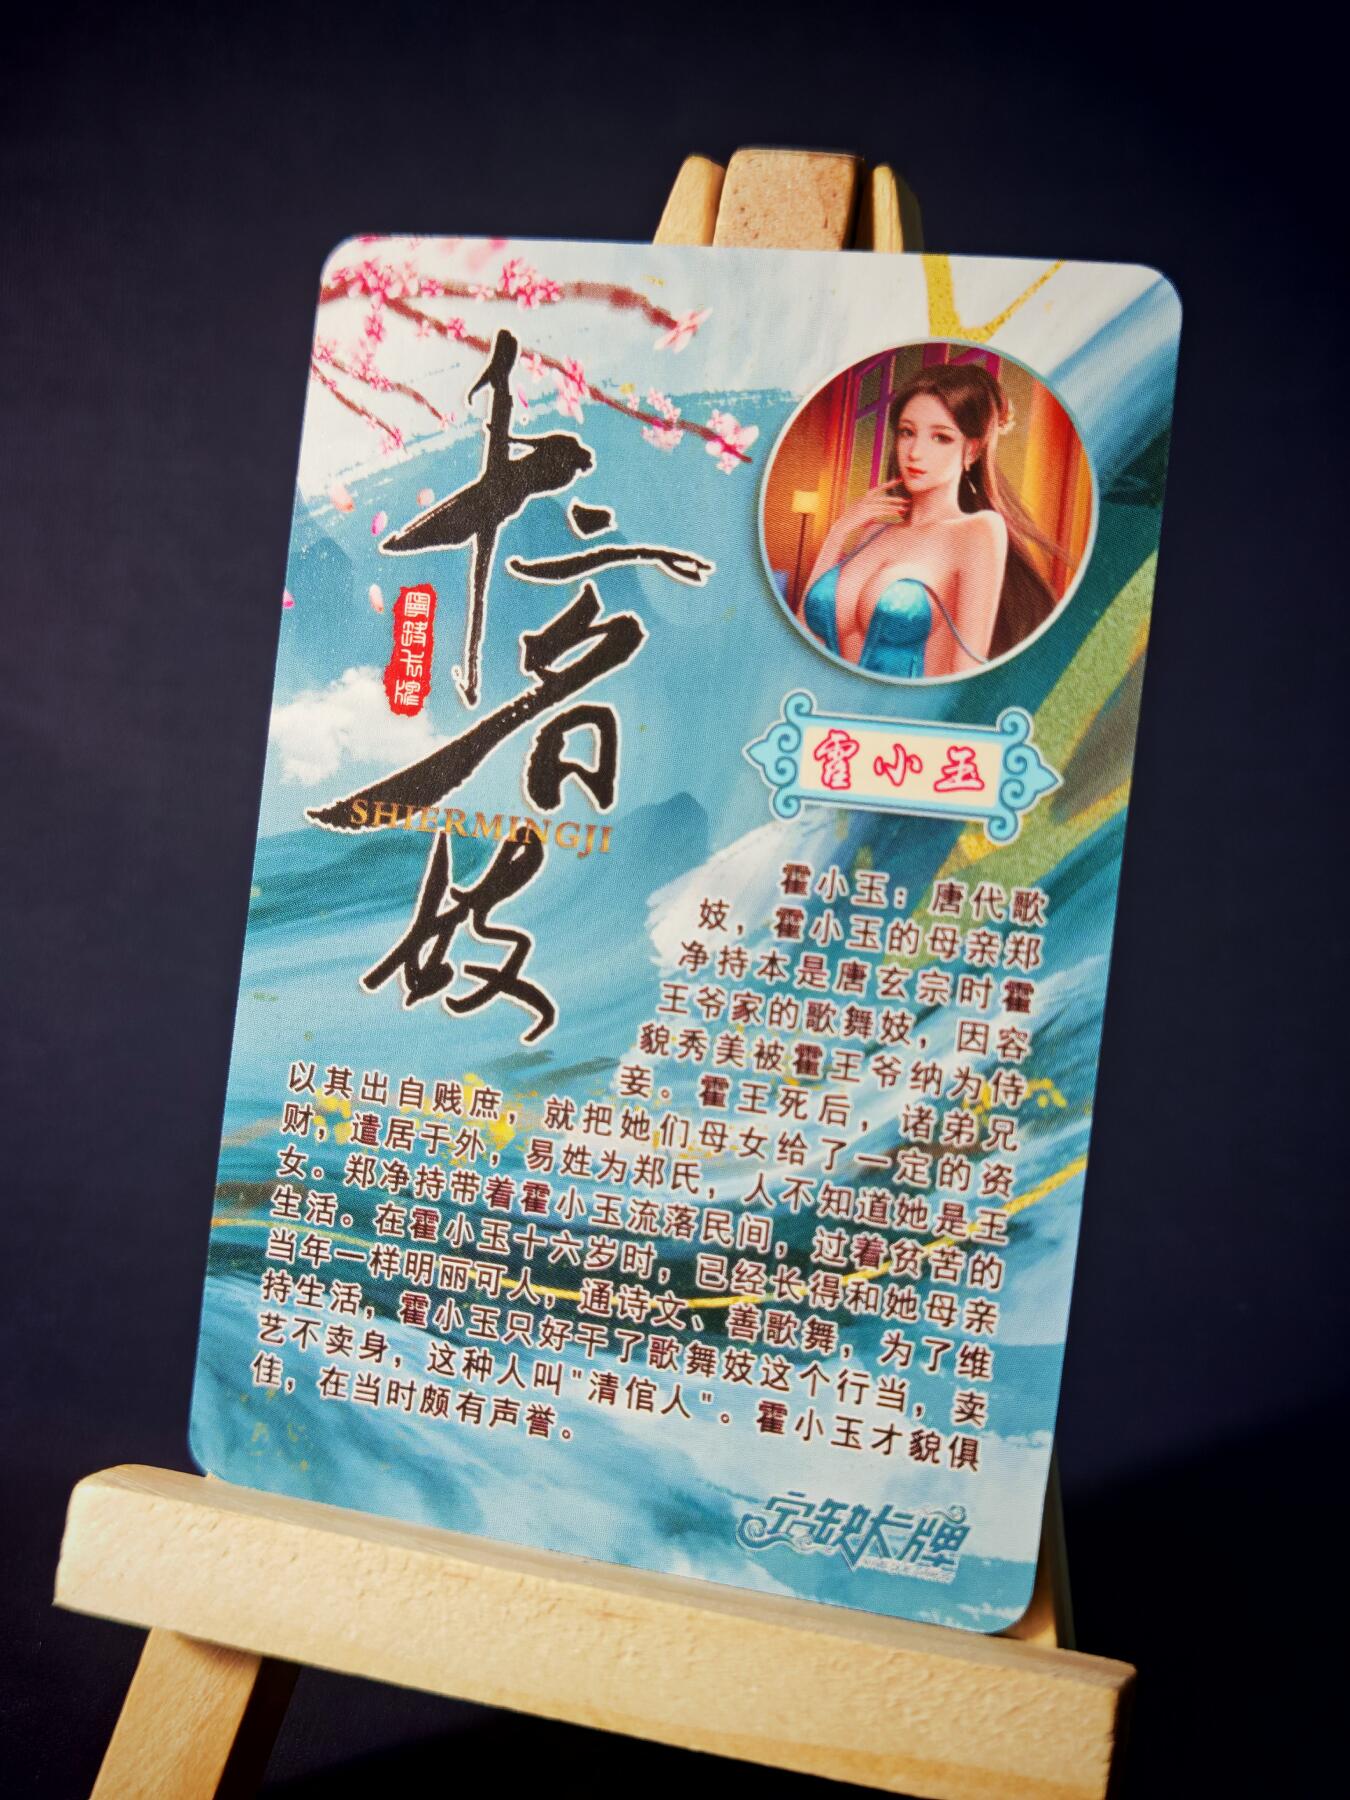 十二名妓
宁缺卡牌
SHIERMINGJI
霍小玉
霍小玉：唐代歌
妓，霍小玉的母亲郑
净持本是唐玄宗时霍
王爷家的歌舞妓，因容
貌秀美被霍王爷纳为侍
妾。霍王死后，诸弟兄
以其出自贱庶，就把她们母女给了一定的资
财，遣居于外，易姓为郑氏，人不知道她是王
女。郑净持带着霍小玉流落民间，过着贫苦的
生活。在霍小玉十六岁时，已经长得和她母亲
当年一样明丽可人，通诗文、善歌舞，为了维
持生活，霍小玉只好干了歌舞妓这个行当，卖
艺不卖身，这种人叫"清倌人"。霍小玉才貌俱
佳，在当时颇有声誉。
宁缺卡牌